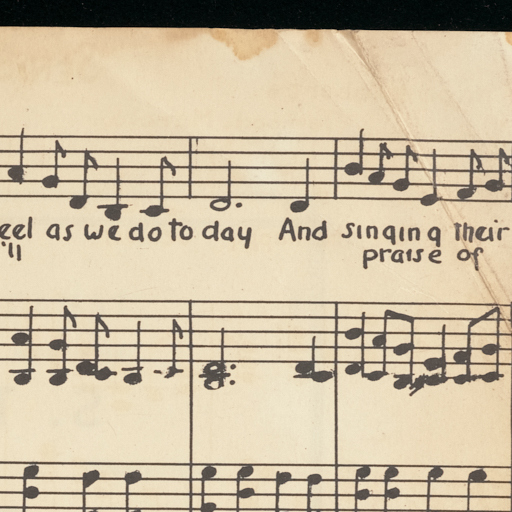 eel as we do to day And singing their
'll praise of